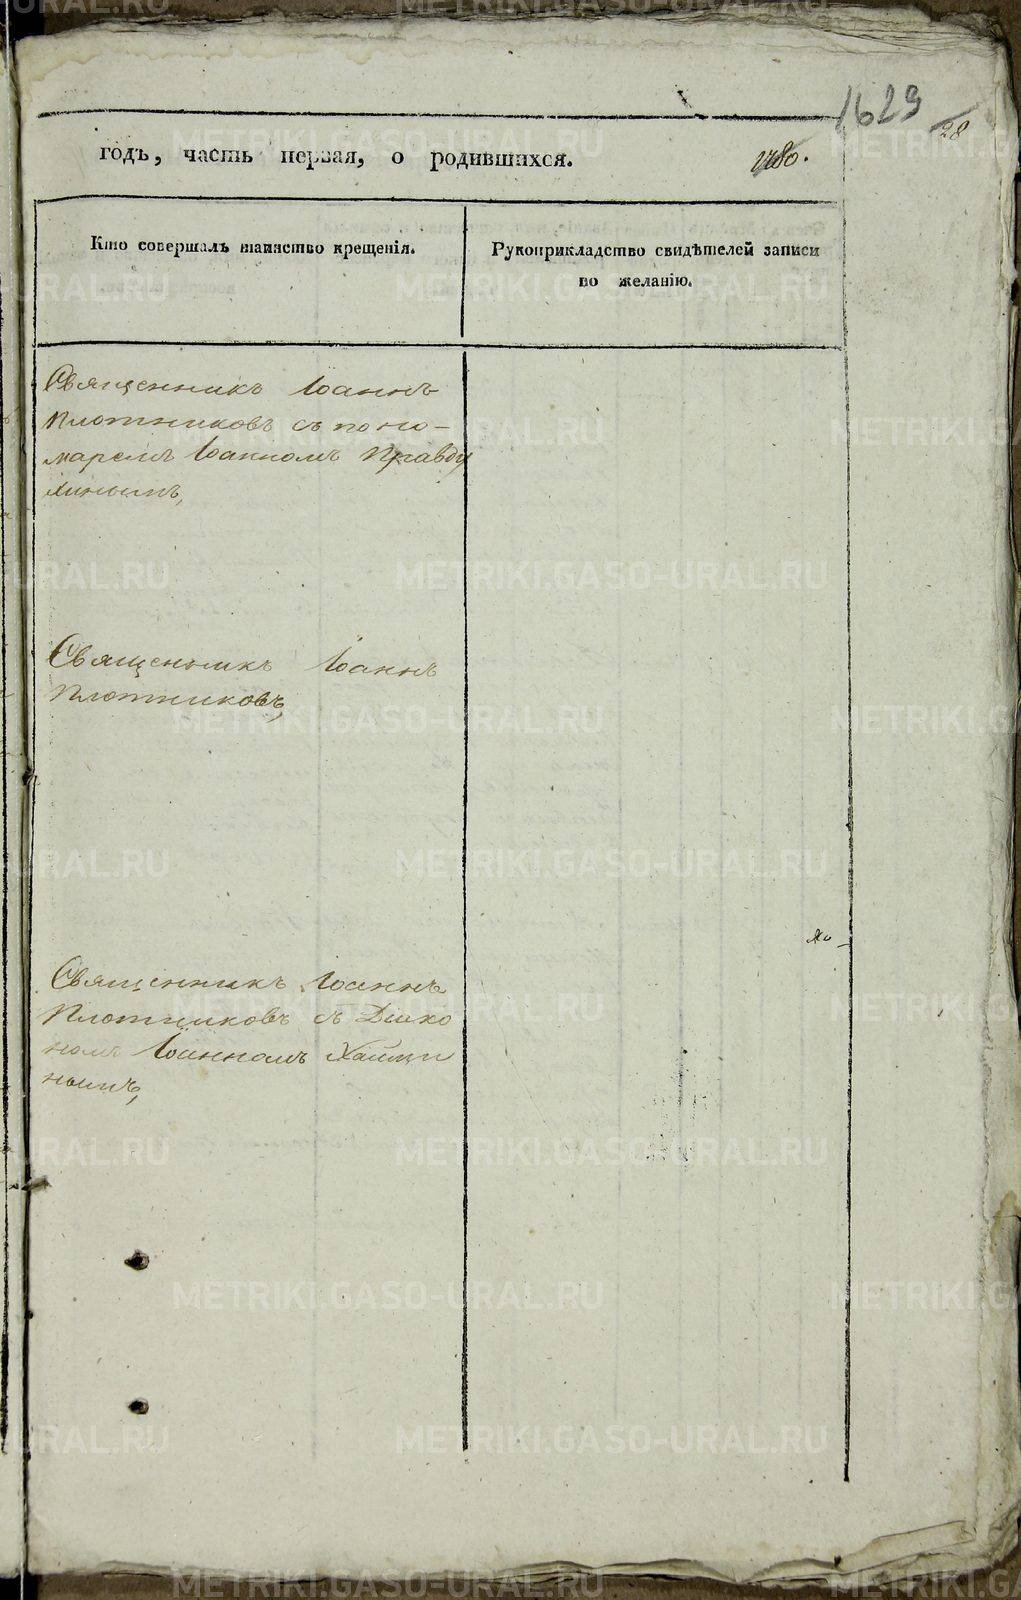 1629
28
годъ, часть первая, о родившихся.
1480.
Кто совершалъ таинство крещенія.
Рукоприкладство свидѣтелей записи
по желанію.
Священникъ Іоаннъ
Плотниковъ съ поно-
маремъ Іоанномъ Правду
хинымъ,
Священникъ Іоаннъ
Плотниковъ,
Священникъ Іоаннъ
Плотниковъ съ Діако
номъ Іоанномъ
нымъ,
METRIKI.GASO-URAL.RU